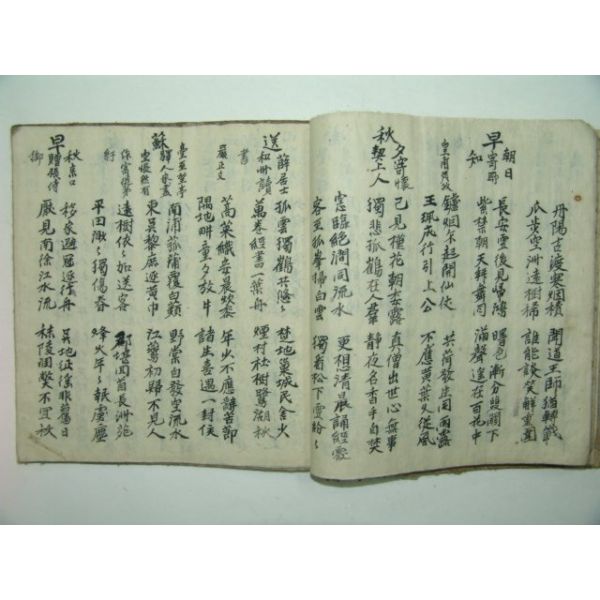 丹陽古渡寒烟積 聞道王師猶轉戰
瓜空洲遠樹稀 誰能談笑解重圍
早朝日寄所知
長安雪後見歸鴻 曙色漸分雙闕下
紫禁朝天拜舞同 漏聲遙在百花中
皇甫
爐烟乍起開仙仗 共荷發生同雨露
玉珮成行引上公 不應黃葉久從風
秋夕寄懷契上人
已見槿花朝委露 真僧出世心無事
獨悲孤鶴在人羣 靜夜名香手自焚
窓臨絶澗聞流水 更想清晨誦經處
客至孤峯掃白雲 獨看松下雪紛〻
送薛居士和州讀書
孤雲獨鶴共悠〻 楚地巢城民舍火
萬卷經書一葉舟 煙村社樹鷺湖秋
嚴正文
蒿萊織妾晨炊黍 年少不應辭苦節
隅地畊童夕放牛 諸生若遇一封侯
蘇臺至望亭驛人家盡空悵然有作寄從弟紓
南浦菰蒲覆白蘋 野棠自發空流水
東吳黎庶逐黃巾 江鷰初歸不見人
遠樹依〻加送客 郡邊回首長洲苑
平田漠〻獨傷春 烽火年〻報虜塵
早秋京口贈領侍御
移家避寇逐行舟 吳地征徭非舊日
厭見南徐江水流 秣陵凋弊不宜秋